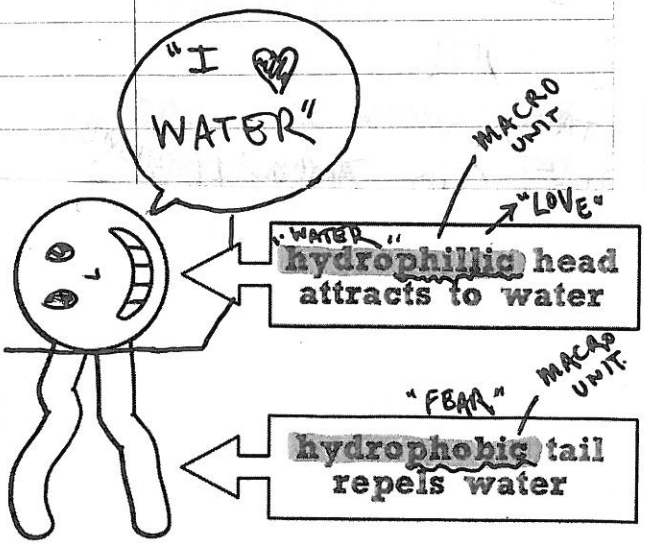 "I ♥
WATER"
MACRO
UNIT
"LOVE"
"WATER"
hydrophillic head
attracts to water
MACRO
UNIT.
"FEAR"
hydrophobic tail
repels water